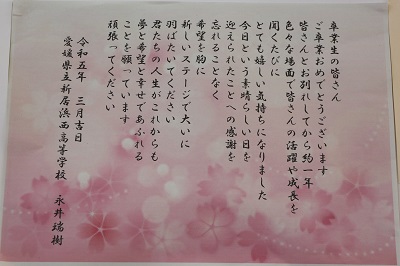 卒業生の皆さん
ご卒業おめでとうございます
皆さんとお別れしてから約一年
色々な場面で皆さんの活躍や成長を
聞くたびに
とても嬉しい気持ちになりました
今日という素晴らしい日を
迎えられたことへの感謝を
忘れることなく
希望を胸に
新しいステージで大いに
羽ばたいてください
君たちの人生がこれからも
夢と希望と幸せであふれる
ことを願っています
頑張ってください
令和五年 三月吉日
愛媛県立新居浜西高等学校 永井瑞樹